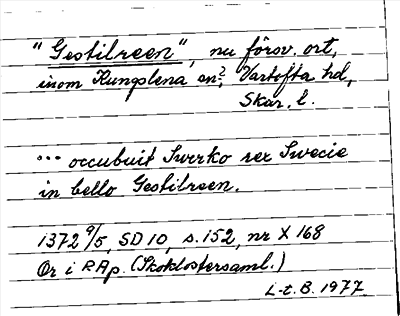 "Gestilreen", nu försv. ort,
inom Kungslena sn?, Vartofta hd,
Skar. l.
... occubuit Swerko rex Swecie
in bello Gestilreen.
1372 9/5, SD 10, s. 152, nr X 168
Or i RAp. (Skoklostersaml.)
L-t. B. 1977